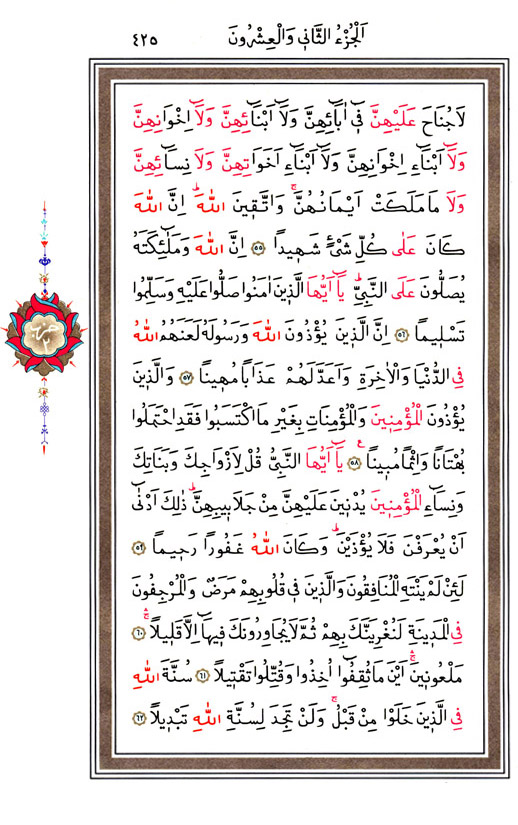 اَلْجُزْءُ الثَّانٖي وَالْعِشْرُونَ ٤٢٥
لَا جُنَاحَ عَلَيْهِنَّ فٖٓي اٰبَٓائِهِنَّ وَلَٓا اَبْنَٓائِهِنَّ وَلَٓا اِخْوَانِهِنَّ
وَلَٓا اَبْنَٓاءِ اِخْوَانِهِنَّ وَلَٓا اَبْنَٓاءِ اَخَوَاتِهِنَّ وَلَا نِسَٓائِهِنَّ
وَلَا مَا مَلَكَتْ اَيْمَانُهُنَّۚ وَاتَّقٖينَ اللّٰهَۜ اِنَّ اللّٰهَ
كَانَ عَلٰى كُلِّ شَيْءٍ شَهٖيدًا ﴿٥٥﴾ اِنَّ اللّٰهَ وَمَلٰٓئِكَتَهُ
يُصَلُّونَ عَلَى النَّبِيِّۜ يَٓا اَيُّهَا الَّذٖينَ اٰمَنُوا صَلُّوا عَلَيْهِ وَسَلِّمُوا
تَسْلٖيمًا ﴿٥٦﴾ اِنَّ الَّذٖينَ يُؤْذُونَ اللّٰهَ وَرَسُولَهُ لَعَنَهُمُ اللّٰهُ
فِي الدُّنْيَا وَالْاٰخِرَةِ وَاَعَدَّ لَهُمْ عَذَابًا مُهٖينًا ﴿٥٧﴾ وَالَّذٖينَ
يُؤْذُونَ الْمُؤْمِنٖينَ وَالْمُؤْمِنَاتِ بِغَيْرِ مَا اكْتَسَبُوا فَقَدِ احْتَمَلُوا
بُهْتَانًا وَاِثْمًا مُبٖينًا ﴿٥٨﴾ يَٓا اَيُّهَا النَّبِيُّ قُلْ لِاَزْوَاجِكَ وَبَنَاتِكَ
وَنِسَٓاءِ الْمُؤْمِنٖينَ يُدْنٖينَ عَلَيْهِنَّ مِنْ جَلَابٖيبِهِنَّۜ ذٰلِكَ اَدْنٰٓى
اَنْ يُعْرَفْنَ فَلَا يُؤْذَيْنَۜ وَكَانَ اللّٰهُ غَفُورًا رَحٖيمًا ﴿٥٩﴾
لَئِنْ لَمْ يَنْتَهِ الْمُنَافِقُونَ وَالَّذٖينَ فٖي قُلُوبِهِمْ مَرَضٌ وَالْمُرْجِفُونَ
فِي الْمَدٖينَةِ لَنُغْرِيَنَّكَ بِهِمْ ثُمَّ لَا يُجَاوِرُونَكَ فٖيهَٓا اِلَّا قَلٖيلًاۚۛ ﴿٦٠﴾
مَلْعُونٖينَۚۛ اَيْنَ مَا ثُقِفُٓوا اُخِذُوا وَقُتِّلُوا تَقْتٖيلًا ﴿٦١﴾ سُنَّةَ اللّٰهِ
فِي الَّذٖينَ خَلَوْا مِنْ قَبْلُۚ وَلَنْ تَجِدَ لِسُنَّةِ اللّٰهِ تَبْدٖيلًا ﴿٦٢﴾